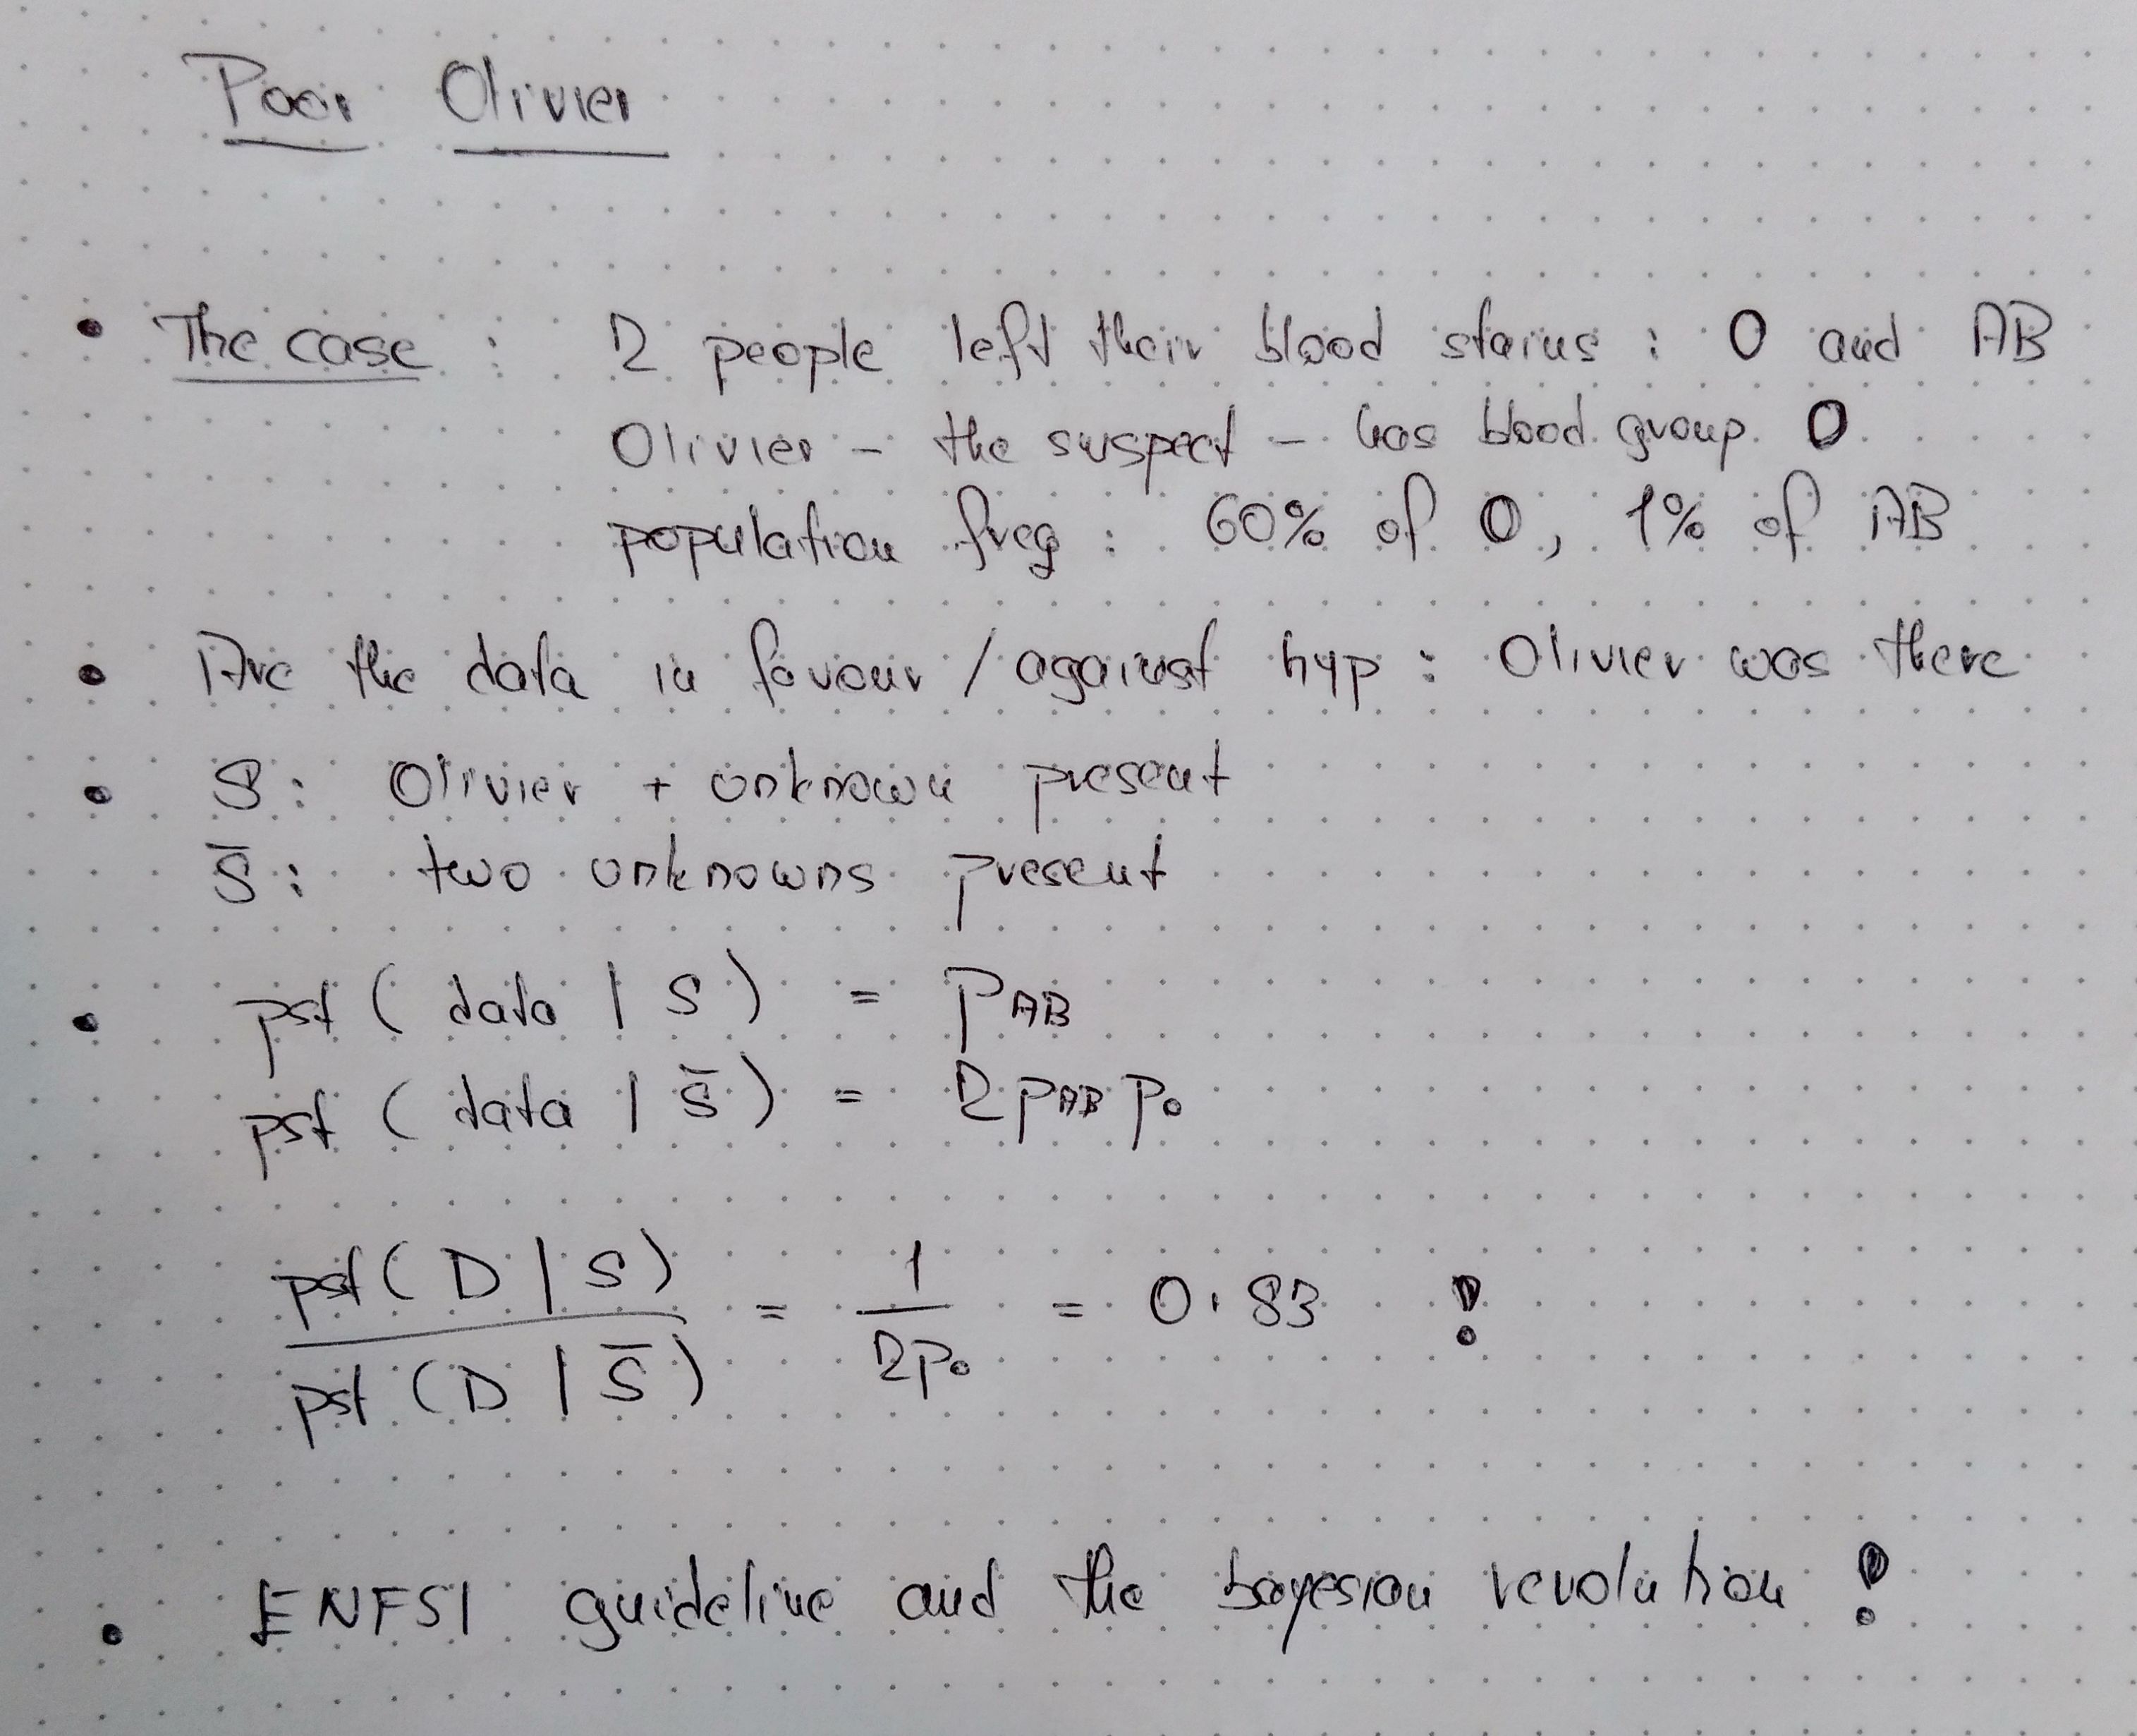 Poor Olivier
• The case : 2 people left their blood stains : O and AB
Olivier – the suspect – has blood group O
population freq : 60% of O, 1% of AB
• Are the data in favour / against hyp : Olivier was there
• S : Olivier + unknown present
S̄ : two unknowns present
• pst ( data | S ) = p_AB
pst ( data | S̄ ) = 2 p_AB p_o
pst ( D | S ) / pst ( D | S̄ ) = 1 / 2p_o = 0.83 !
• ENFSI guideline and the bayesian revolution !